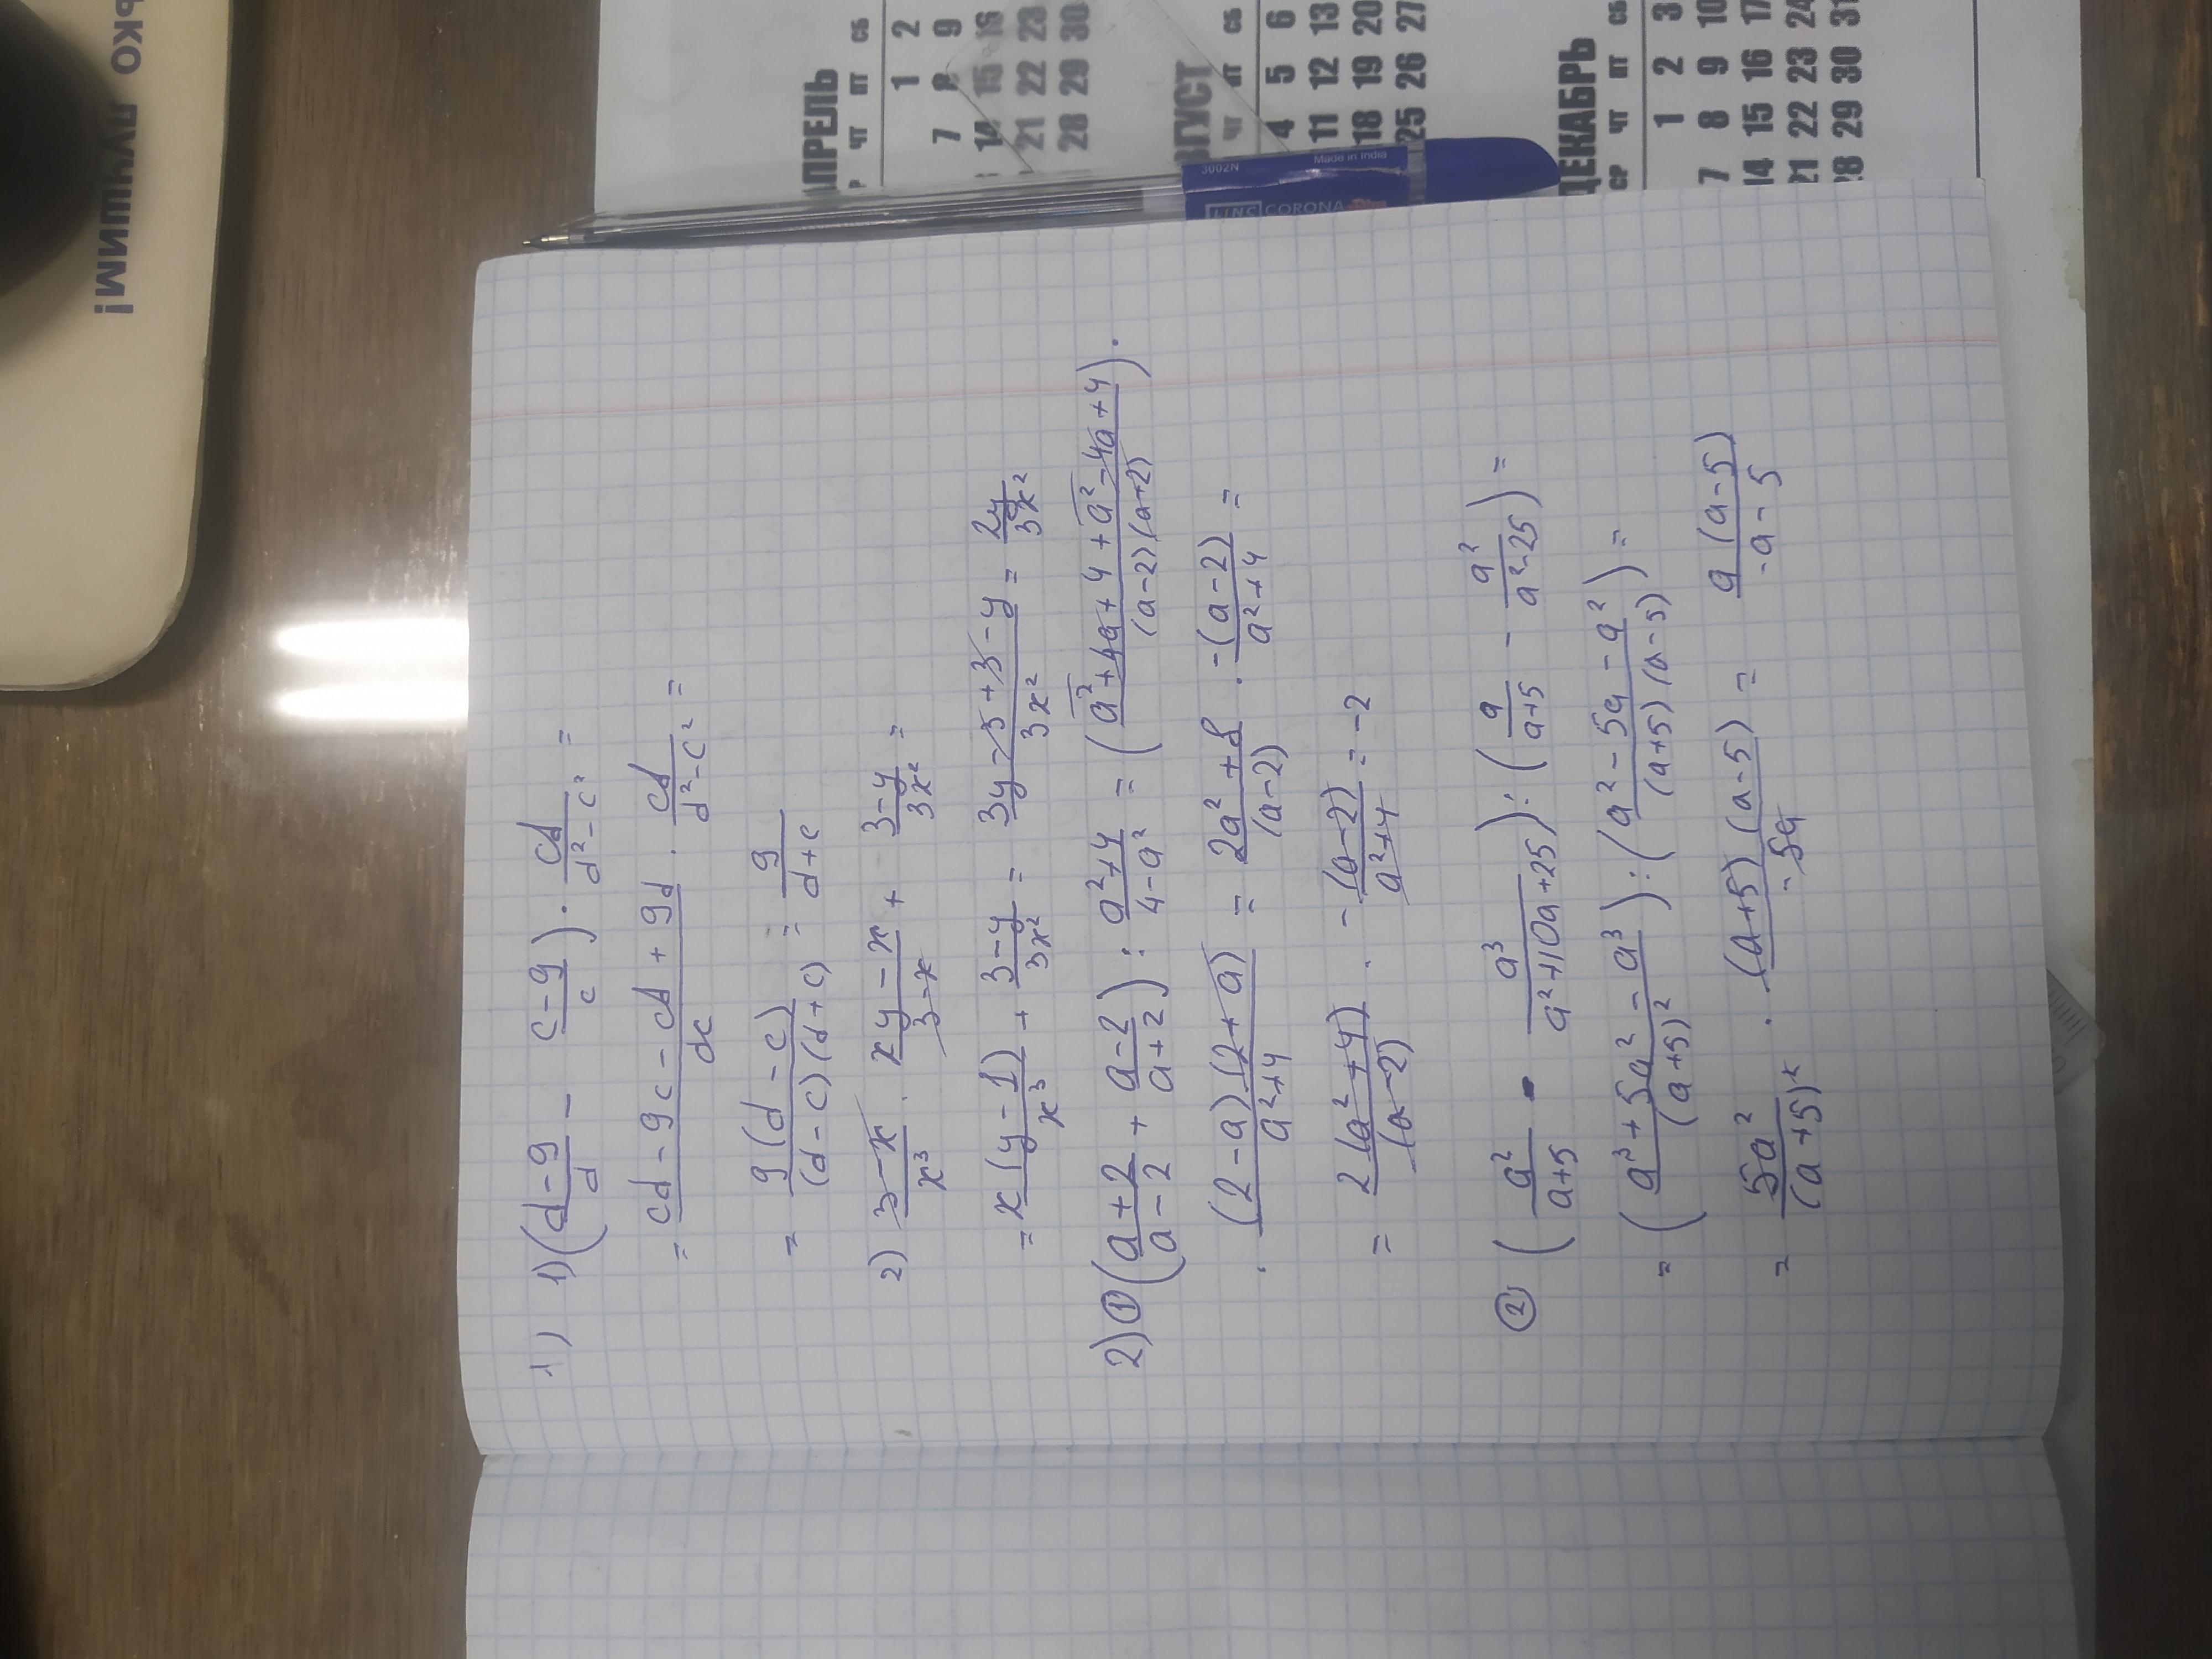 1) 1) (d-9/d - c-9/c) · cd/d²-c² =
= cd-9c-cd+9d/dc · cd/d²-c² =
= 9(d-c)/(d-c)(d+c) = 9/d+c
2) 3-x/x³ · xy-x/3-x + 3-y/3x² =
= x(y-1)/x³ + 3-y/3x² = 3y-3+3-y/3x² = 2y/3x²
2) ① (a+2/a-2 + a-2/a+2) : a²+4/4-a² = (a²+4a+4+a²-4a+4/(a-2)(a+2)) ·
· (2-a)(2+a)/a²+4 = 2a²+8/(a-2) · -(a-2)/a²+4 =
= 2(a²+4)/(a-2) · -(a-2)/a²+4 = -2
② (a²/a+5 - a³/a²+10a+25) : (a/a+5 - a²/a²-25) =
= (a³+5a²-a³/(a+5)²) : (a²-5a-a²/(a+5)(a-5)) =
= 5a²/(a+5)² · (a+5)(a-5)/-5a = a(a-5)/-a-5
ЬКО ЛУЧШИМ!
АПРЕЛЬ
Р ЧТ ПТ СБ
1 2
7 8 9
14 15 16
21 22 23
28 29 30
ВГУСТ
ЧТ ПТ СБ
4 5 6
11 12 13
18 19 20
25 26 27
ДЕКАБРЬ
СР ЧТ ПТ СБ
1 2 3
7 8 9 10
14 15 16 17
21 22 23 24
28 29 30 31
3002N
Made in India
LINC CORONA Plus